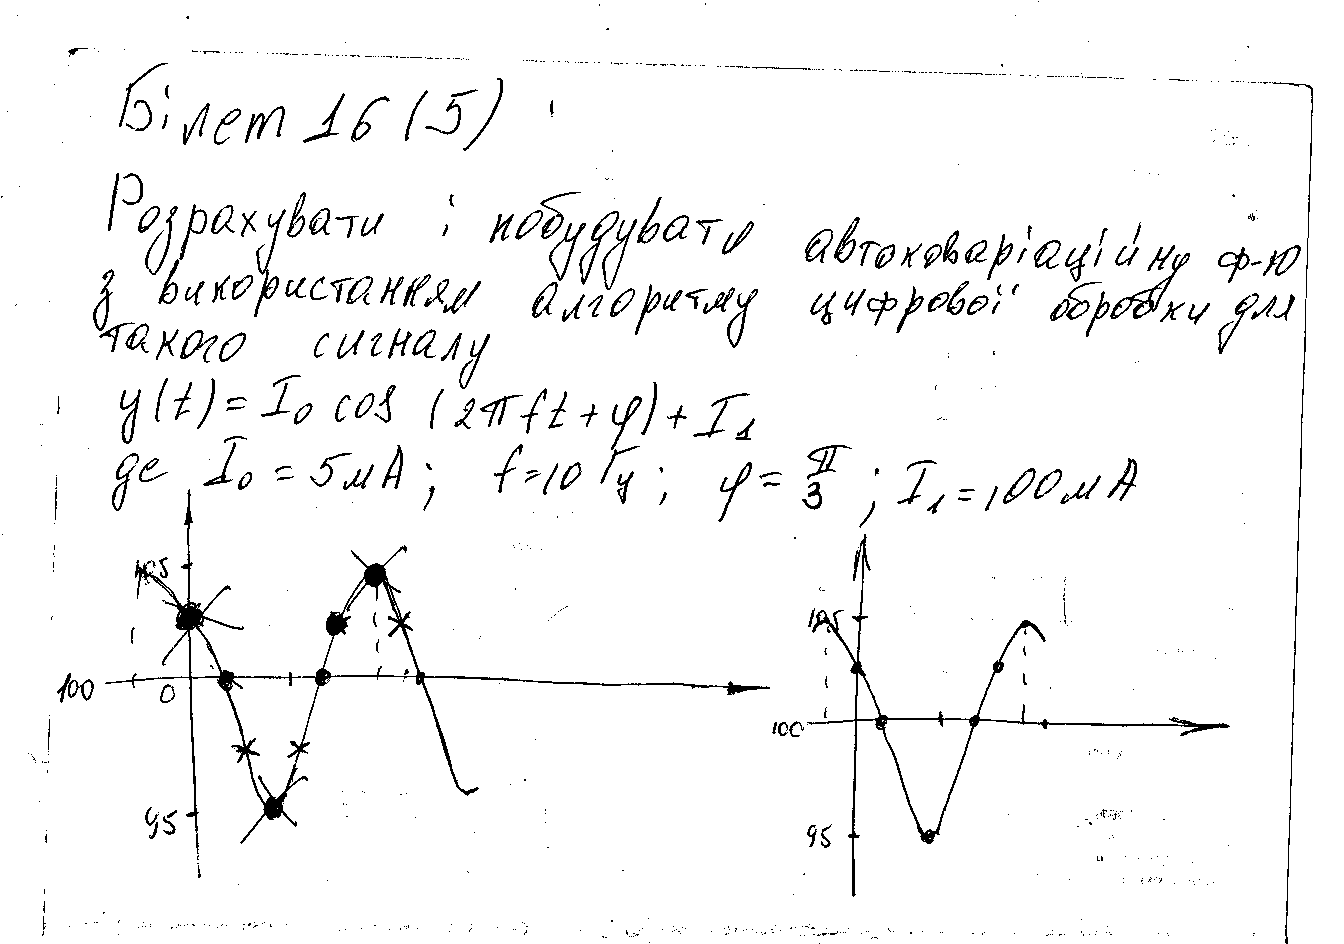 Білет 16 (5)
Розрахувати і побудувати автоковаріаційну ф-ю
з використанням алгоритму цифрової обробки для
такого сигналу
y(t) = I₀ cos (2πft + φ) + I₁
де I₀ = 5мА; f=10 Гц; φ = π/3; I₁ = 100мА
105
100
0
95
105
100
95